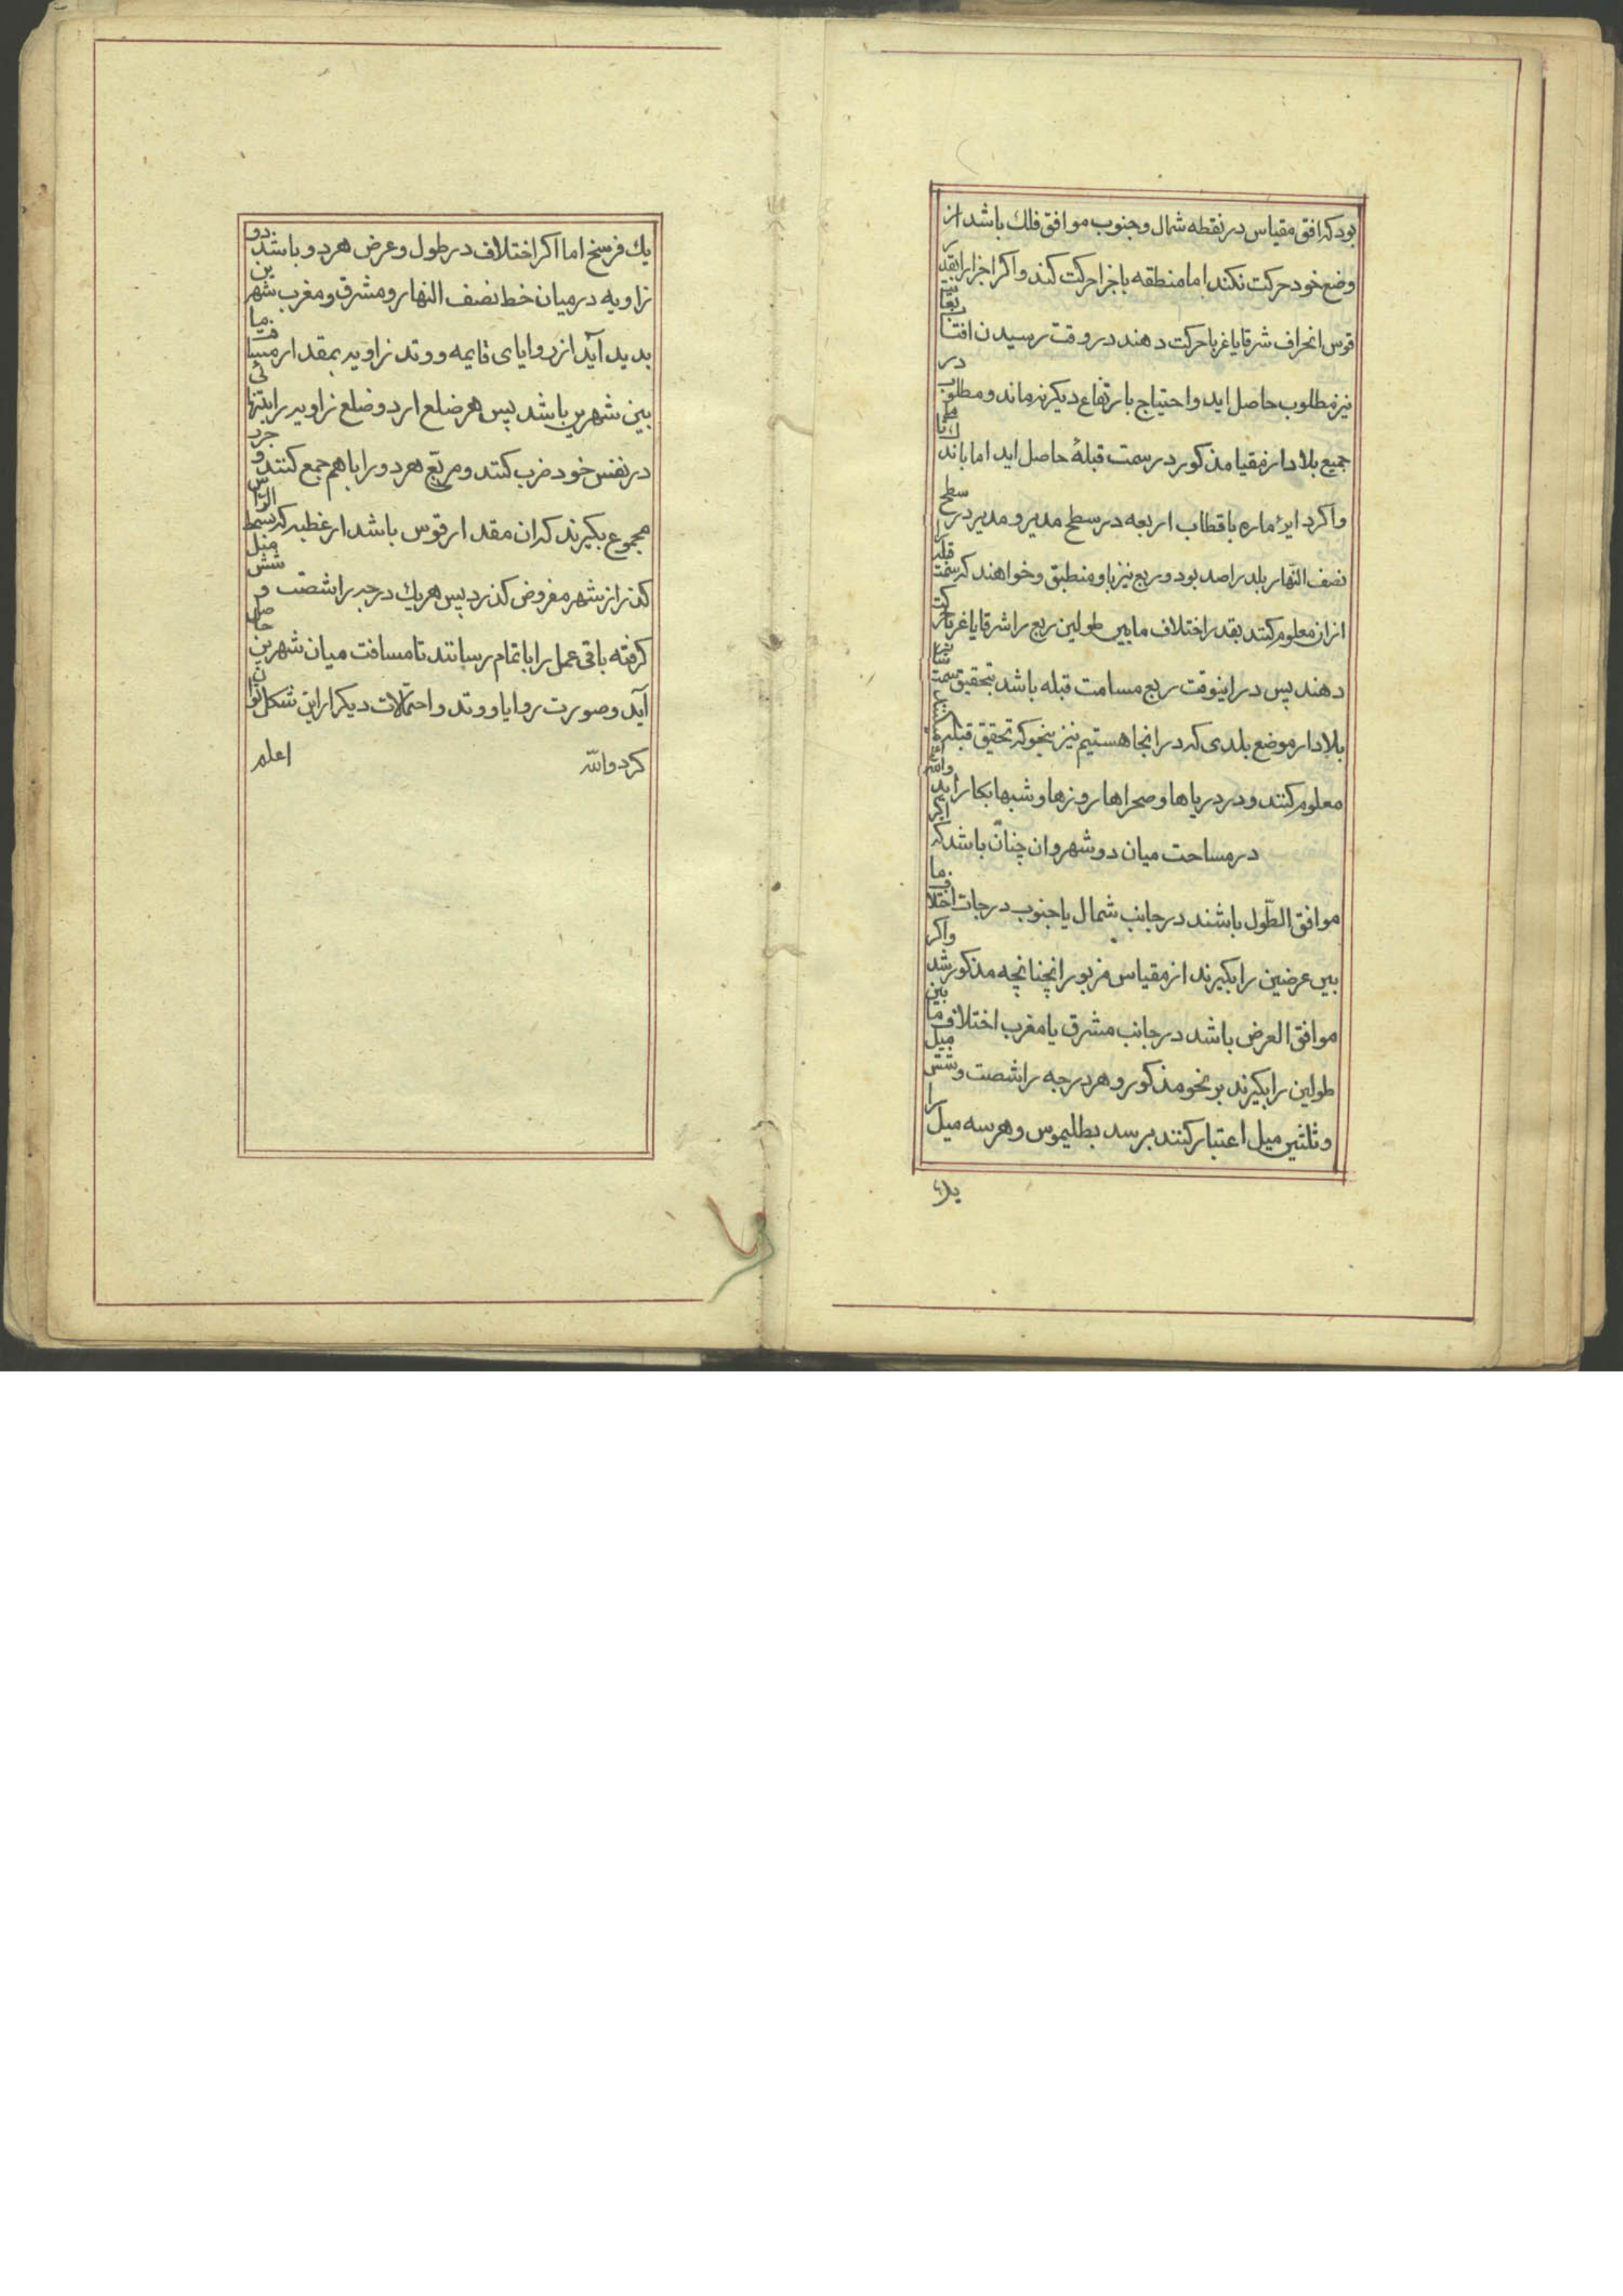 بود که افق مقیاس در نقطه شمال و جنوب موافق فلك باشد از
وضع خود حرکت نکند اما منطقه با جزا حرکت کند و اکر اجزا را بقدر
قوس انحراف شرقا یا غربا حرکت دهند در وقت رسیدن افتاب
نیز مطلوب حاصل اید و احتیاج بارتفاع دیکر نه ماند و مطلوب در
جمیع بلاد از مقیا مذکور در سمت قبلهٔ حاصل اید اما باندك
و اکر دایرهٔ ماره باقطاب اربعه در سطح مدیر و مدیر در سطح
نصف النّهار بلد راصد بود و ربع نیز باو منطبق و خواهند که سمت قبله را
ازان معلوم کنند بقدر اختلاف مابین طولین ربع را شرقا یا غربا حرکت
دهند پس در اینوقت ربع مسامت قبله باشد بتحقیق سمت
بلاد از موضع بلدی که در انجا هستیم نیز بنحو که تحقیق قبله
معلوم کنند و در دریاها و صحراها روزها و شبها بکار اید
در مساحت میان دو شهر و ان چنان باشد که اکر
موافق الطّول باشند در جانب شمال یا جنوب درجات اختلاف ما
بین عرضین را بکیرند از مقیاس مزبور انچنانچه مذکور شد واکر
موافق العرض باشد در جانب مشرق یا مغرب اختلاف ما بین
طولین را بکیرند بر نحو مذکور و هر درجه را شصت و شش میل
و ثلثین میل اعتبار کنند برسد بطلیموس و هر سه میل را
یك
یك فرسخ اما اکر اختلاف در طول و عرض هر دو باشد دو
زاویه در میان خط نصف النهار و مشرق و مغرب شهرین
بدید آید از زوایای قایمه و وتد زاویه بمقدار مسافت ما
بین شهرین باشد پس هر ضلع از دو ضلع زاویه را بتنهائی
در نفس خود ضرب کنند و مربّع هر دو را با هم جمع کنند و جزر
مجموع بکیرند که ان مقدار قوس باشد از عظیمه که بسمت الراس
کذر از شهر مفروض کذرد پس هر یك درجه را شصت و شش میل
کرفته باقی عمل را باتمام رسانند تا مسافت میان شهرین حاصل
آید و صورت زوایا و وتد و احتمالات دیکر از این شکل توان
کرد والله اعلم